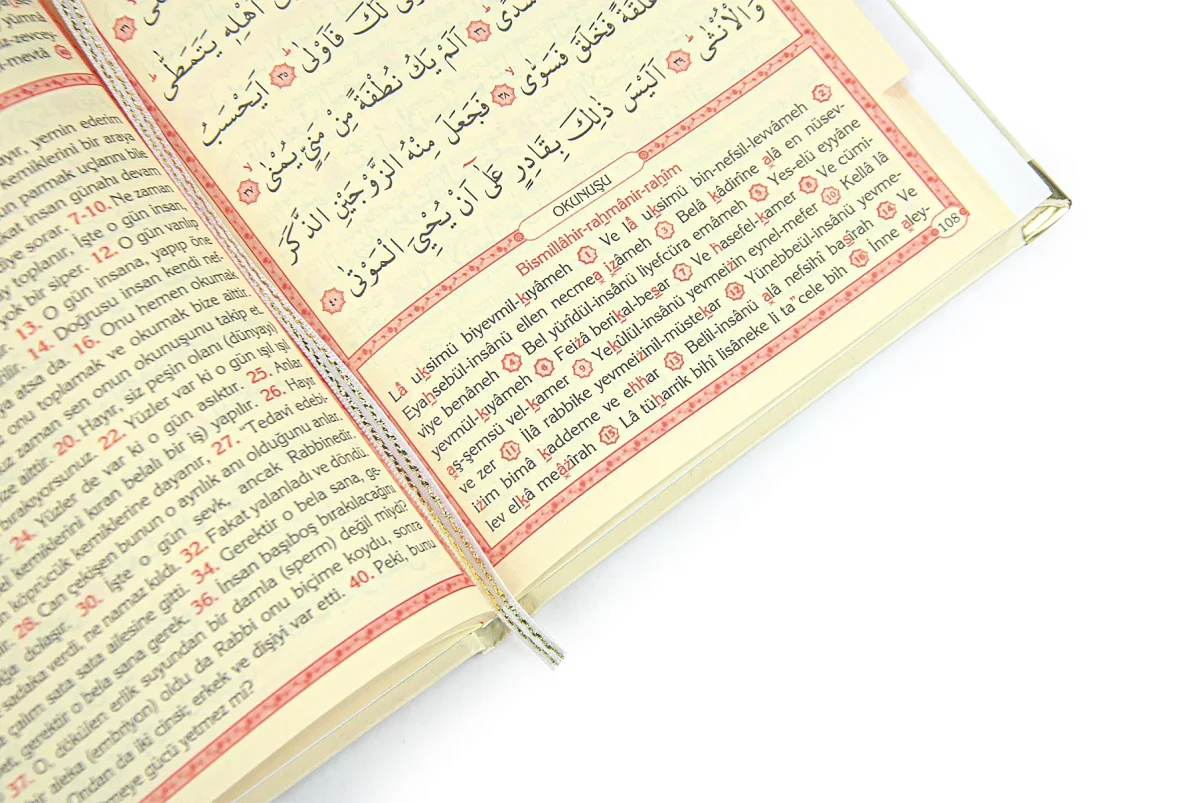 yümnâ
k-mevtâ
ayır, yemin ederim
kemiklerini bir araya
un parmak uçlarını bile
akat insan günahı devam
diye sorar. 7-10. Ne zaman
toplanır, İşte o gün insan,
yok bir siper. 12. O gün varılıp
13. O gün insana, yapıp öne
14. Doğrusu insan kendi nef-
atsa da. 16. Onu hemen okumak
onu toplamak ve okumak bize aittir.
zaman sen onun okunuşunu takip et.
aittir. 20. Hayır, siz peşin olanı (dünyayı)
bırakıyorsunuz. 22. Yüzler var ki o gün ışıl ışıl
24. Yüzler de var ki o gün asıktır. 25. Anlar
bel kemiklerini kıran belalı bir iş) yapılır. 26. Hayır
köprücük kemiklerine dayanır, 27. "Tedavi edebir
28. Can çekişen bunun o ayrılık anı olduğunu anlar.
dolaşır. 30. İşte o gün sevk, ancak Rabbinedir.
sadaka verdi, ne namaz kıldı. 32. Fakat yalanladı ve döndü.
çalım sata sata ailesine gitti. 34. Gerektir o bela sana, ge-
gerektir o bela sana gerek. 36. İnsan başıboş bırakılacağını
37. O, dökülen erlik suyundan bir damla (sperm) değil miydi?
bir aleka (embriyon) oldu da Rabbi onu biçime koydu, sonra
Ondan da iki cinsi; erkek ve dişiyi var etti. 40. Peki, bunu
meye gücü yetmez mi?
اَهْلِهِ يَتَمَطّٰى
لَكَ فَاَوْلٰى ﴿٣٥﴾ اَيَحْسَبُ
سُدًى ﴿٣٦﴾ اَلَمْ يَكُ نُطْفَةً مِنْ مَنِيٍّ يُمْنٰى ﴿٣٧﴾
عَلَقَةً فَخَلَقَ فَسَوّٰى ﴿٣٨﴾ فَجَعَلَ مِنْهُ الزَّوْجَيْنِ الذَّكَرَ
وَالْاُنْثٰى ﴿٣٩﴾ اَلَيْسَ ذٰلِكَ بِقَادِرٍ عَلٰٓى اَنْ يُحْيِيَ الْمَوْتٰى ﴿٤٠﴾
OKUNUŞU
Bismillâhir-raḥmânir-raḥîm
Lâ uḳsimü biyevmil-ḳıyâmeh 1 Ve lâ uḳsimü bin-nefsil-levvâmeh 2
Eyaḥsebül-insânü ellen necmea iẓâmeh 3 Belâ ḳâdirîne alâ en nüsev-
viye benâneh 4 Bel yürîdül-insânü liyefcüra emâmeh 5 Yes-elü eyyâne
yevmül-ḳıyâmeh 6 Feiẕâ beriḳal-beṣar 7 Ve ḫasefel-ḳamer 8 Ve cümi-
aş-şemsü vel-ḳamer 9 Yeḳûlül-insânü yevmeiẕin eynel-mefer 10 Kellâ lâ
ve zer 11 İlâ rabbike yevmeiẕinil-müsteḳar 12 Yünebbeül-insânü yevme-
iẕim bimâ ḳaddeme ve eḫḫar 13 Belil-insânü alâ nefsihî baṣîrah 14 Ve
lev elḳâ meâẕîrah 15 Lâ tüḥarrik bihî lisâneke li ta"cele bih 16 İnne aley-
108